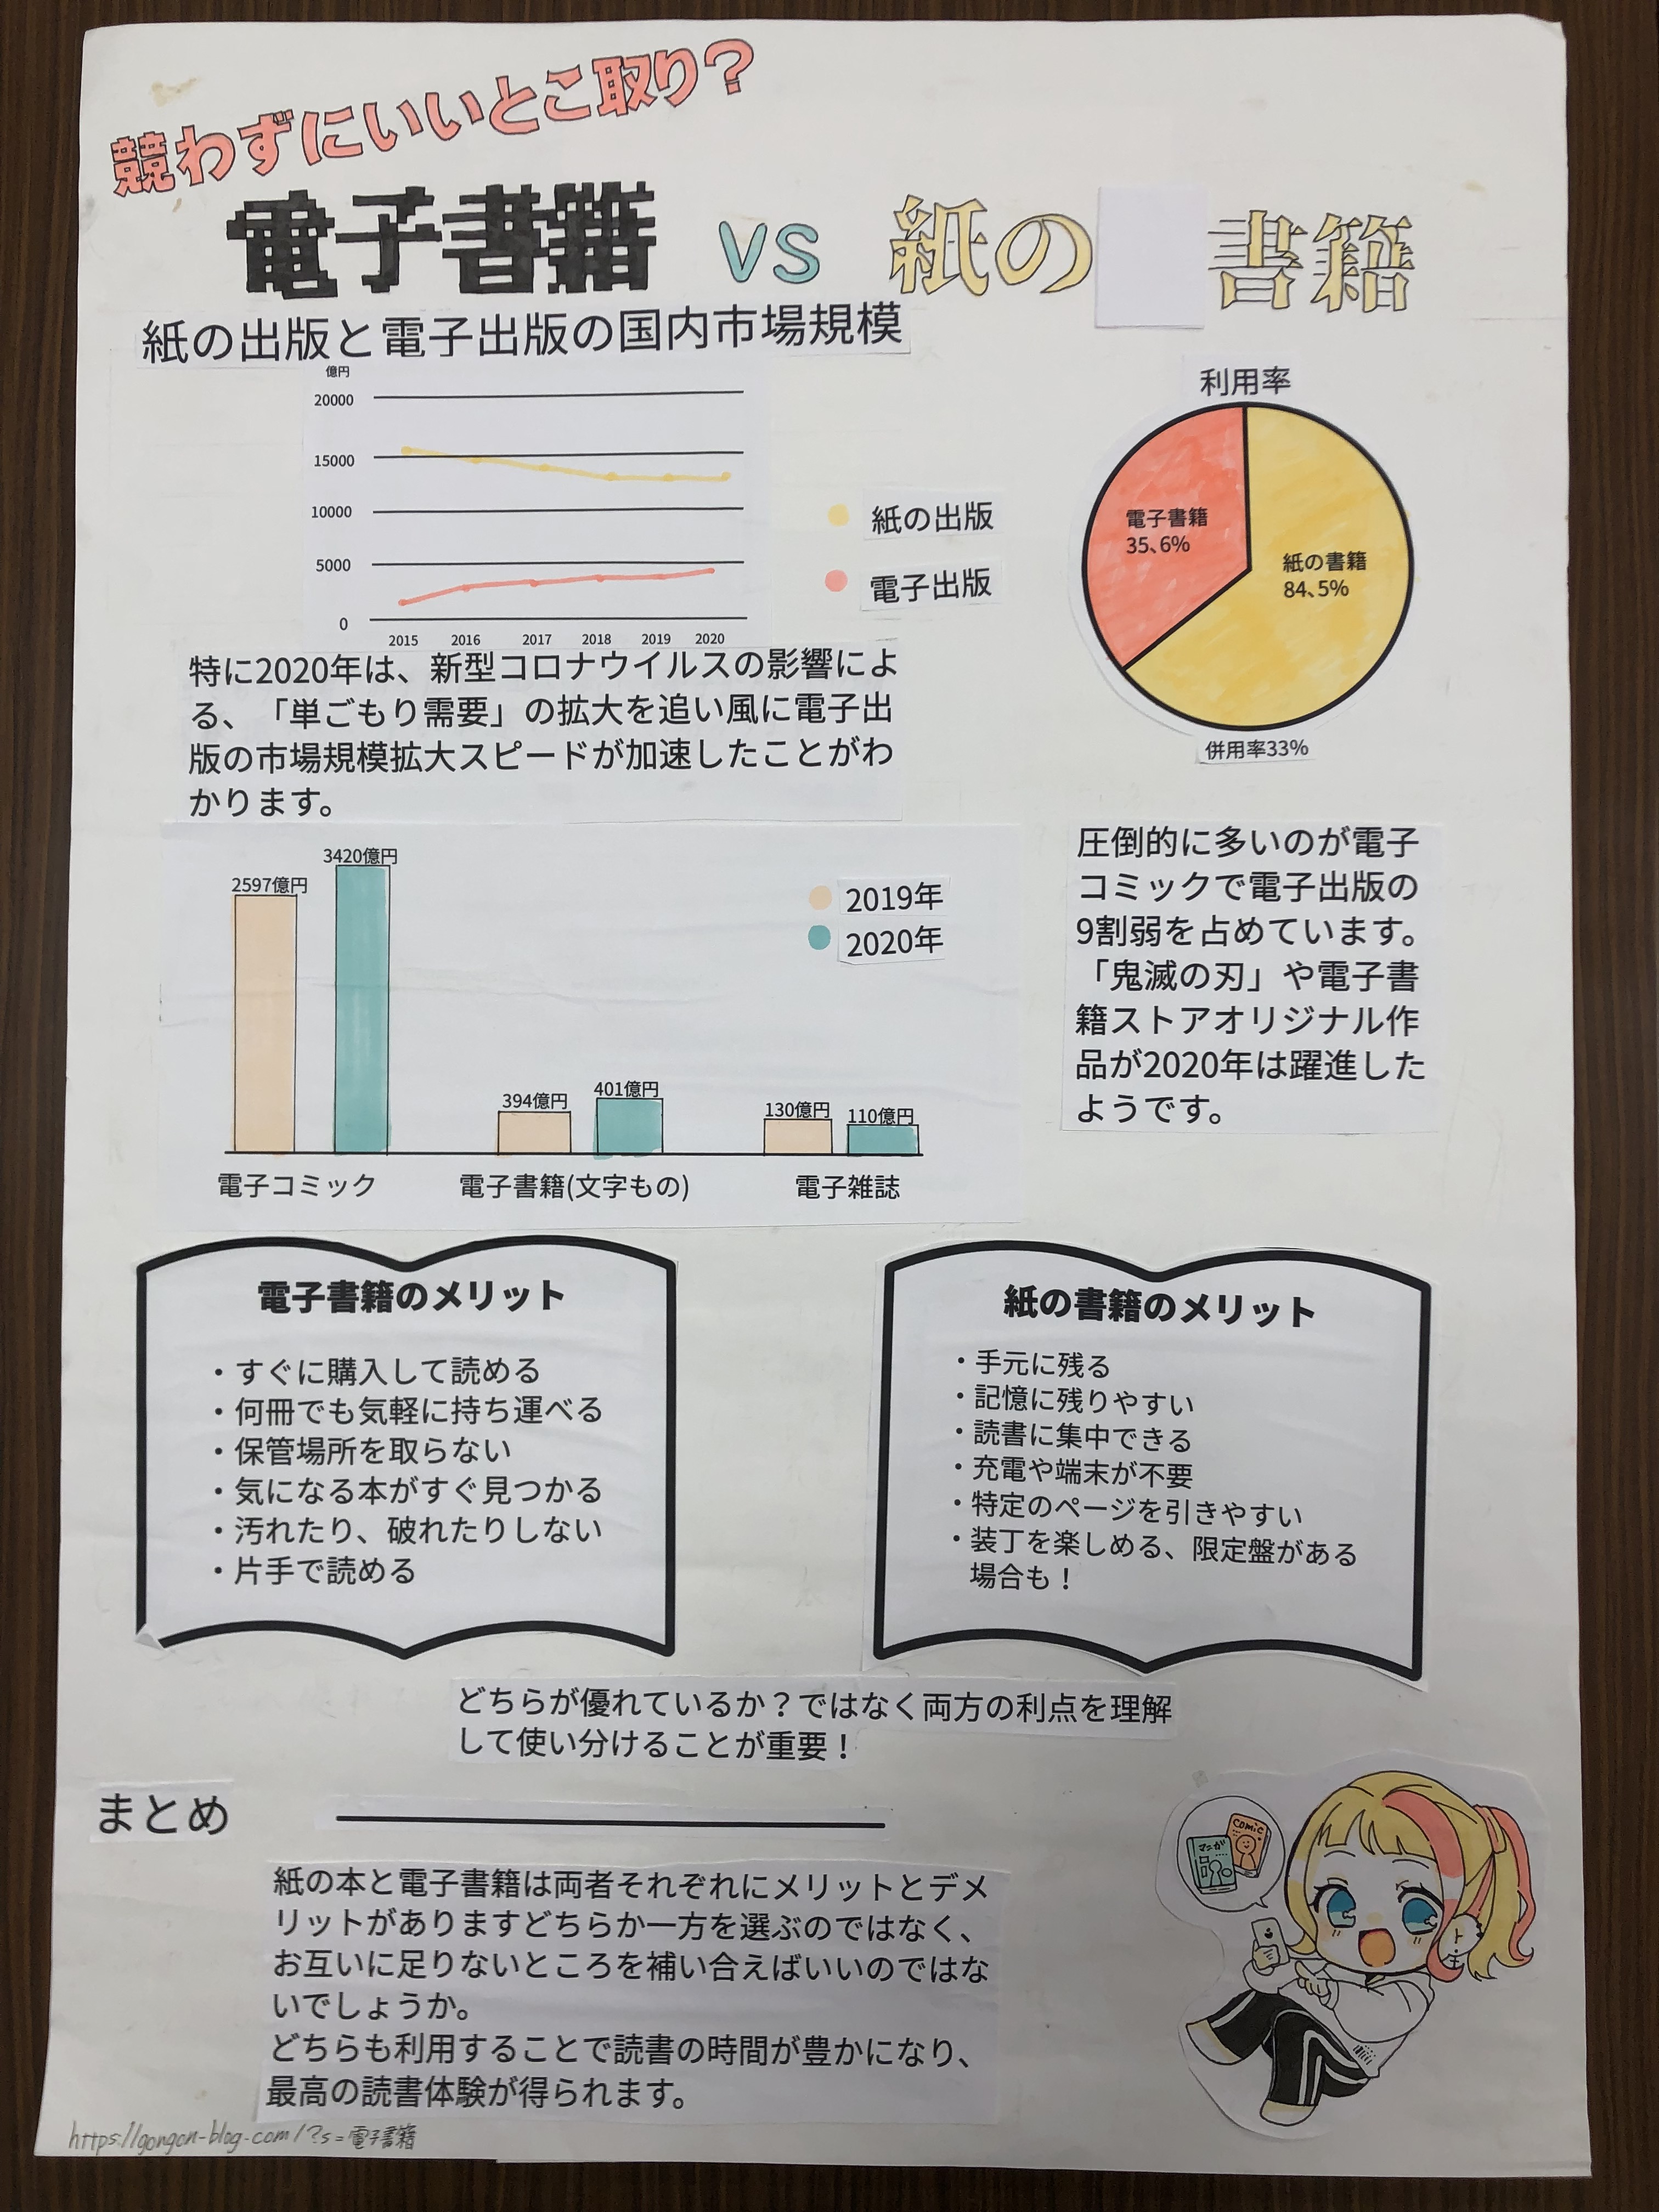 競わずにいいとこ取り？
電子書籍 VS 紙の書籍
紙の出版と電子出版の国内市場規模
億円
20000
15000
10000
5000
0
2015 2016 2017 2018 2019 2020
紙の出版
電子出版
利用率
電子書籍
35、6%
紙の書籍
84、5%
併用率33%
特に2020年は、新型コロナウイルスの影響によ
る、「単ごもり需要」の拡大を追い風に電子出
版の市場規模拡大スピードが加速したことがわ
かります。
2597億円
3420億円
394億円
401億円
130億円
110億円
2019年
2020年
電子コミック
電子書籍(文字もの)
電子雑誌
圧倒的に多いのが電子
コミックで電子出版の
9割弱を占めています。
「鬼滅の刃」や電子書
籍ストアオリジナル作
品が2020年は躍進した
ようです。
電子書籍のメリット
・すぐに購入して読める
・何冊でも気軽に持ち運べる
・保管場所を取らない
・気になる本がすぐ見つかる
・汚れたり、破れたりしない
・片手で読める
紙の書籍のメリット
・手元に残る
・記憶に残りやすい
・読書に集中できる
・充電や端末が不要
・特定のページを引きやすい
・装丁を楽しめる、限定盤がある
場合も！
どちらが優れているか？ではなく両方の利点を理解
して使い分けることが重要！
まとめ
紙の本と電子書籍は両者それぞれにメリットとデメ
リットがありますどちらか一方を選ぶのではなく、
お互いに足りないところを補い合えばいいのではな
いでしょうか。
どちらも利用することで読書の時間が豊かになり、
最高の読書体験が得られます。
マンガ
COMIC
https://gongon-blog.com/?s=電子書籍